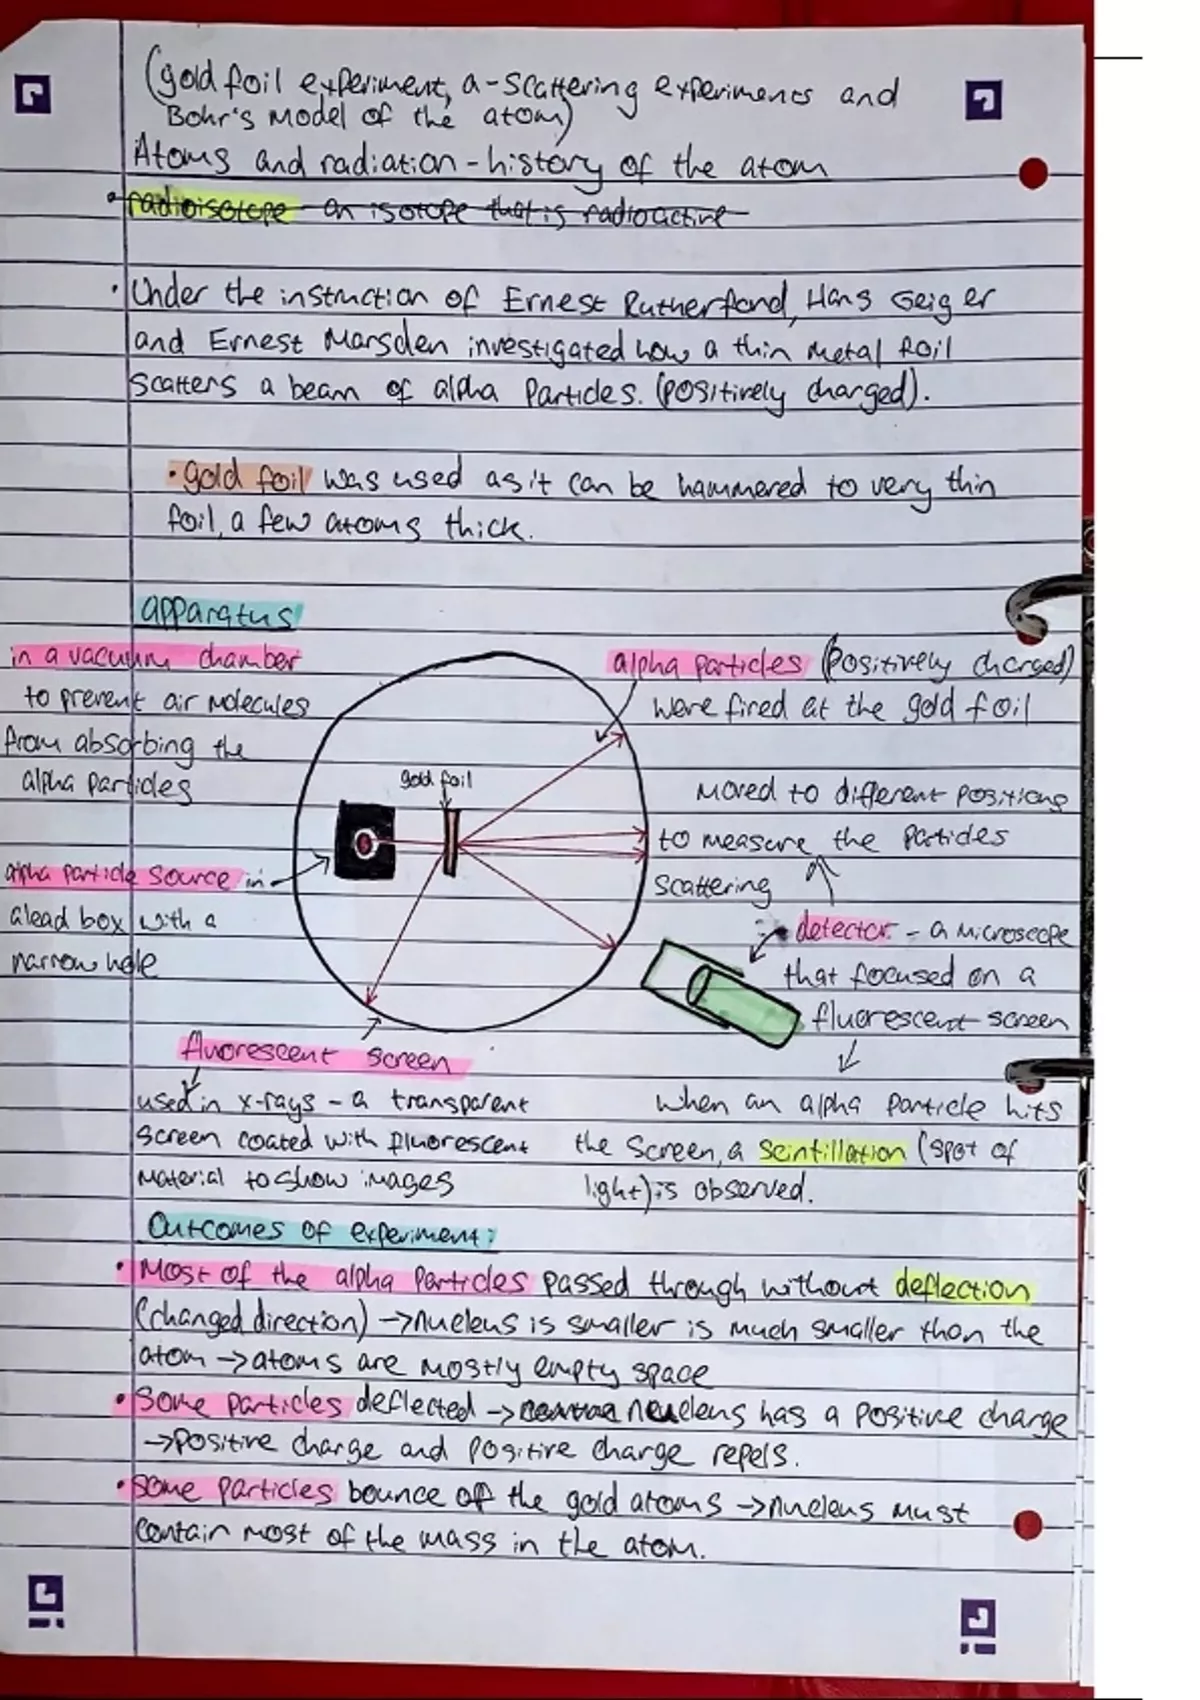 (gold foil experiment, a-scattering experiments and
Bohr's model of the atom)
Atoms and radiation - history of the atom
• radioisotope - an isotope that is radioactive
• Under the instruction of Ernest Rutherford, Hans Geiger
and Ernest Marsden investigated how a thin metal foil
scatters a beam of alpha particles. (positively charged).
• gold foil was used as it can be hammered to very thin
foil, a few atoms thick.
apparatus
in a vacuum chamber
to prevent air molecules
from absorbing the
alpha particles
alpha particles (positively charged)
were fired at the gold foil
gold foil
moved to different positions
to measure the particles
scattering
alpha particle source in
a lead box with a
narrow hole
detector - a microscope
that focused on a
fluorescent screen
fluorescent screen
used in x-rays - a transparent
screen coated with fluorescent
material to show images
when an alpha particle hits
the screen, a scintillation (spot of
light) is observed.
Outcomes of experiment:
• Most of the alpha particles passed through without deflection
(changed direction) → nucleus is smaller is much smaller than the
atom → atoms are mostly empty space
• Some particles deflected → nucleus has a positive charge
→ positive charge and positive charge repels.
• Some particles bounce off the gold atoms → nucleus must
contain most of the mass in the atom.